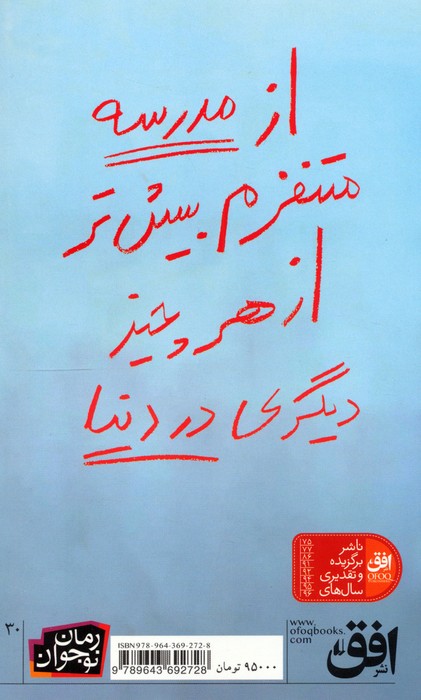 از مدرسه
متنفرم بیش‌تر
از هر چیز
دیگری در دنیا
ناشر
برگزیده
و تقدیری
سال‌های
افق
OFOQ
www.
ofoqbooks.
com
نشر افق
۳۰
رمان
نوجوان
ISBN 978-964-369-272-8
9 789643 692728
۹۵۰۰۰ تومان